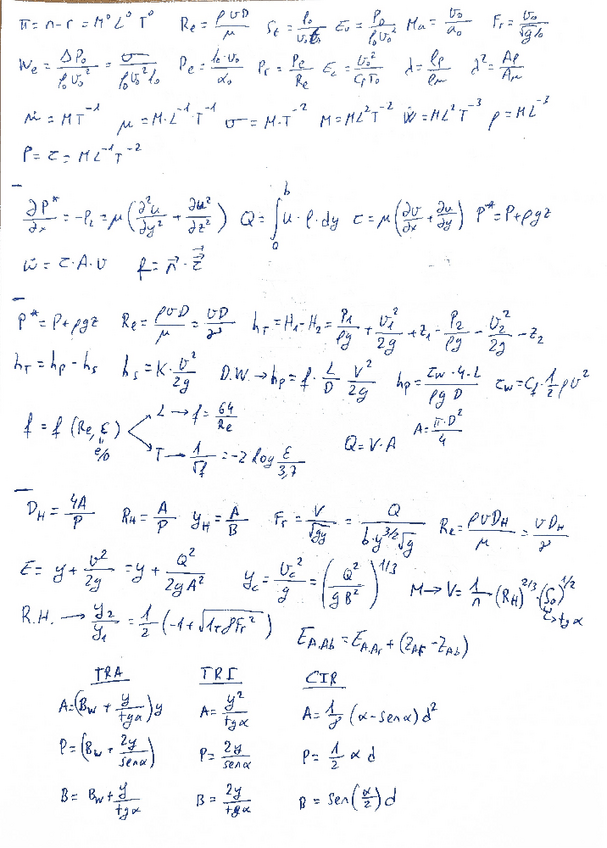 π = n-r = M⁰ L⁰ T⁰   Re = ρvD/μ   St = l₀/v₀t₀   E₀ = P₀/ρ₀v₀²   Ma = v₀/a₀   Fr = v₀/√(g l₀)
We = ΔP₀/ρ₀v₀² = σ/ρ₀v₀²l₀   Pe = l₀·v₀/α₀   Pr = Pe/Re   Ec = v₀²/CpT₀   λ = lp/lm   λ² = Ap/Am
ṁ = MT⁻¹   μ = M·L⁻¹·T⁻¹   σ = M·T⁻²   M = ML²T⁻²   Ẇ = ML²T⁻³   ρ = ML⁻³
P = τ = ML⁻¹T⁻²
∂P*/∂x = -P₂ = μ(∂²u/∂y² + ∂²u/∂z²)   Q = ∫₀ᵇ u·ρ·dy   τ = μ(∂v/∂x + ∂u/∂y)   P* = P+ρgz
ẇ = τ·A·v   f = n·τ
P* = P+ρgz   Re = ρvD/μ = vD/γ   hT = H₁-H₂ = P₁/ρg + v₁²/2g + z₁ - P₂/ρg - v₂²/2g - z₂
hT = hp - hs   hs = K·v²/2g   D.W. → hp = f·L/D V²/2g   hp = τw·4·L/ρg D   τw = Cf·1/2 ρv²
f = f(Re, ε)   L → f = 64/Re
e/D   T → 1/√f = -2 log ε/3,7   Q = V·A   A = π·D²/4
DH = 4A/P   RH = A/P   yH = A/B   Fr = V/√(gy) = Q/(b·y^3/2 √g)   Re = ρvDH/μ = vDH/γ
E = y + v²/2g = y + Q²/2gA²   yc = vc²/g = (Q²/gB²)^1/3   M → V = 1/n (RH)^2/3 (S₀)^1/2
R.H. → y₂/y₁ = 1/2 (-1+√(1+8Fr²))   EA.Ab = EA.Ar + (ZAr - ZAb)   tgα
TRA   TRI   CIR
A = (Bw + y/tgα)y   A = y²/tgα   A = 1/8 (α-senα)d²
P = (Bw + 2y/senα)   P = 2y/senα   P = 1/2 α d
B = Bw + y/tgα   B = 2y/tgα   B = sen(α/2)d